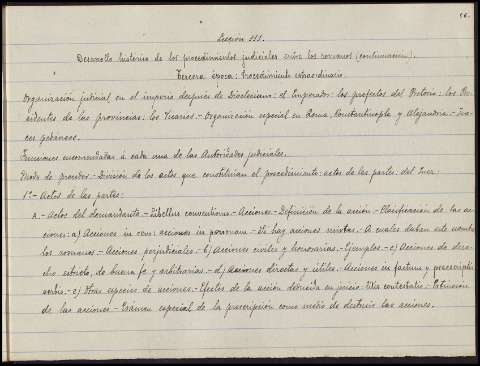 Lección III.
Desarrollo historico de los procedimientos judiciales entre los romanos (continuación).
Tercera época: Procedimiento extraordinario.
Organización judicial en el imperio después de Diocleciano: el Emperador: los prefectos del Pretorio: los Pre-
sidentes de las provincias: los Vicarios.- Organización especial en Roma, Constantinopla y Alejandria.- Jue-
ces pedáneos.
Funciones encomendadas á cada una de las Autoridades judiciales.
Modo de proceder.- División de los actos que constituían el procedimiento: actos de las partes: del Juez.
1º.- Actos de las partes:
A.- Actos del demandante.- Libellus conventionis.- Acciones.- Definición de la acción.- Clasificación de las ac-
ciones: a) Acciones in rem: acciones in personam.- Si hay acciones mixtas. A cuales daban este nombre
los romanos.- Acciones perjudiciales.- b) Acciones civiles y honorarias.- Ejemplos.- c) Acciones de dere-
cho estricto, de buena fe y arbitrarias.- d) Acciones directas y útiles.- Acciones in factum y praescriptis
verbis.- e) Otras especies de acciones.- Efectos de la acción deducida en juicio: litis contestatio.- Extinción
de las acciones.- Examen especial de la prescripción como medio de destruir las acciones.